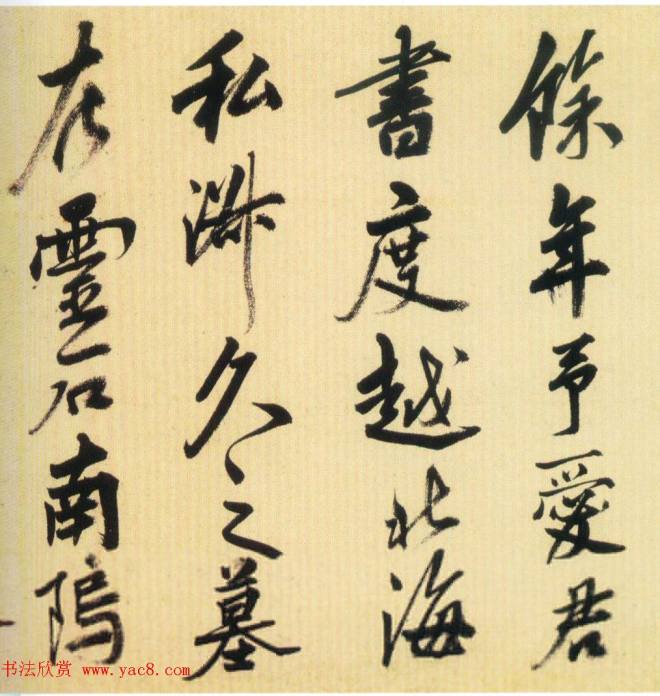 餘年予愛君
書度越北海
私淑久之墓
在靈石南隖
书法欣赏 www.yac8.com